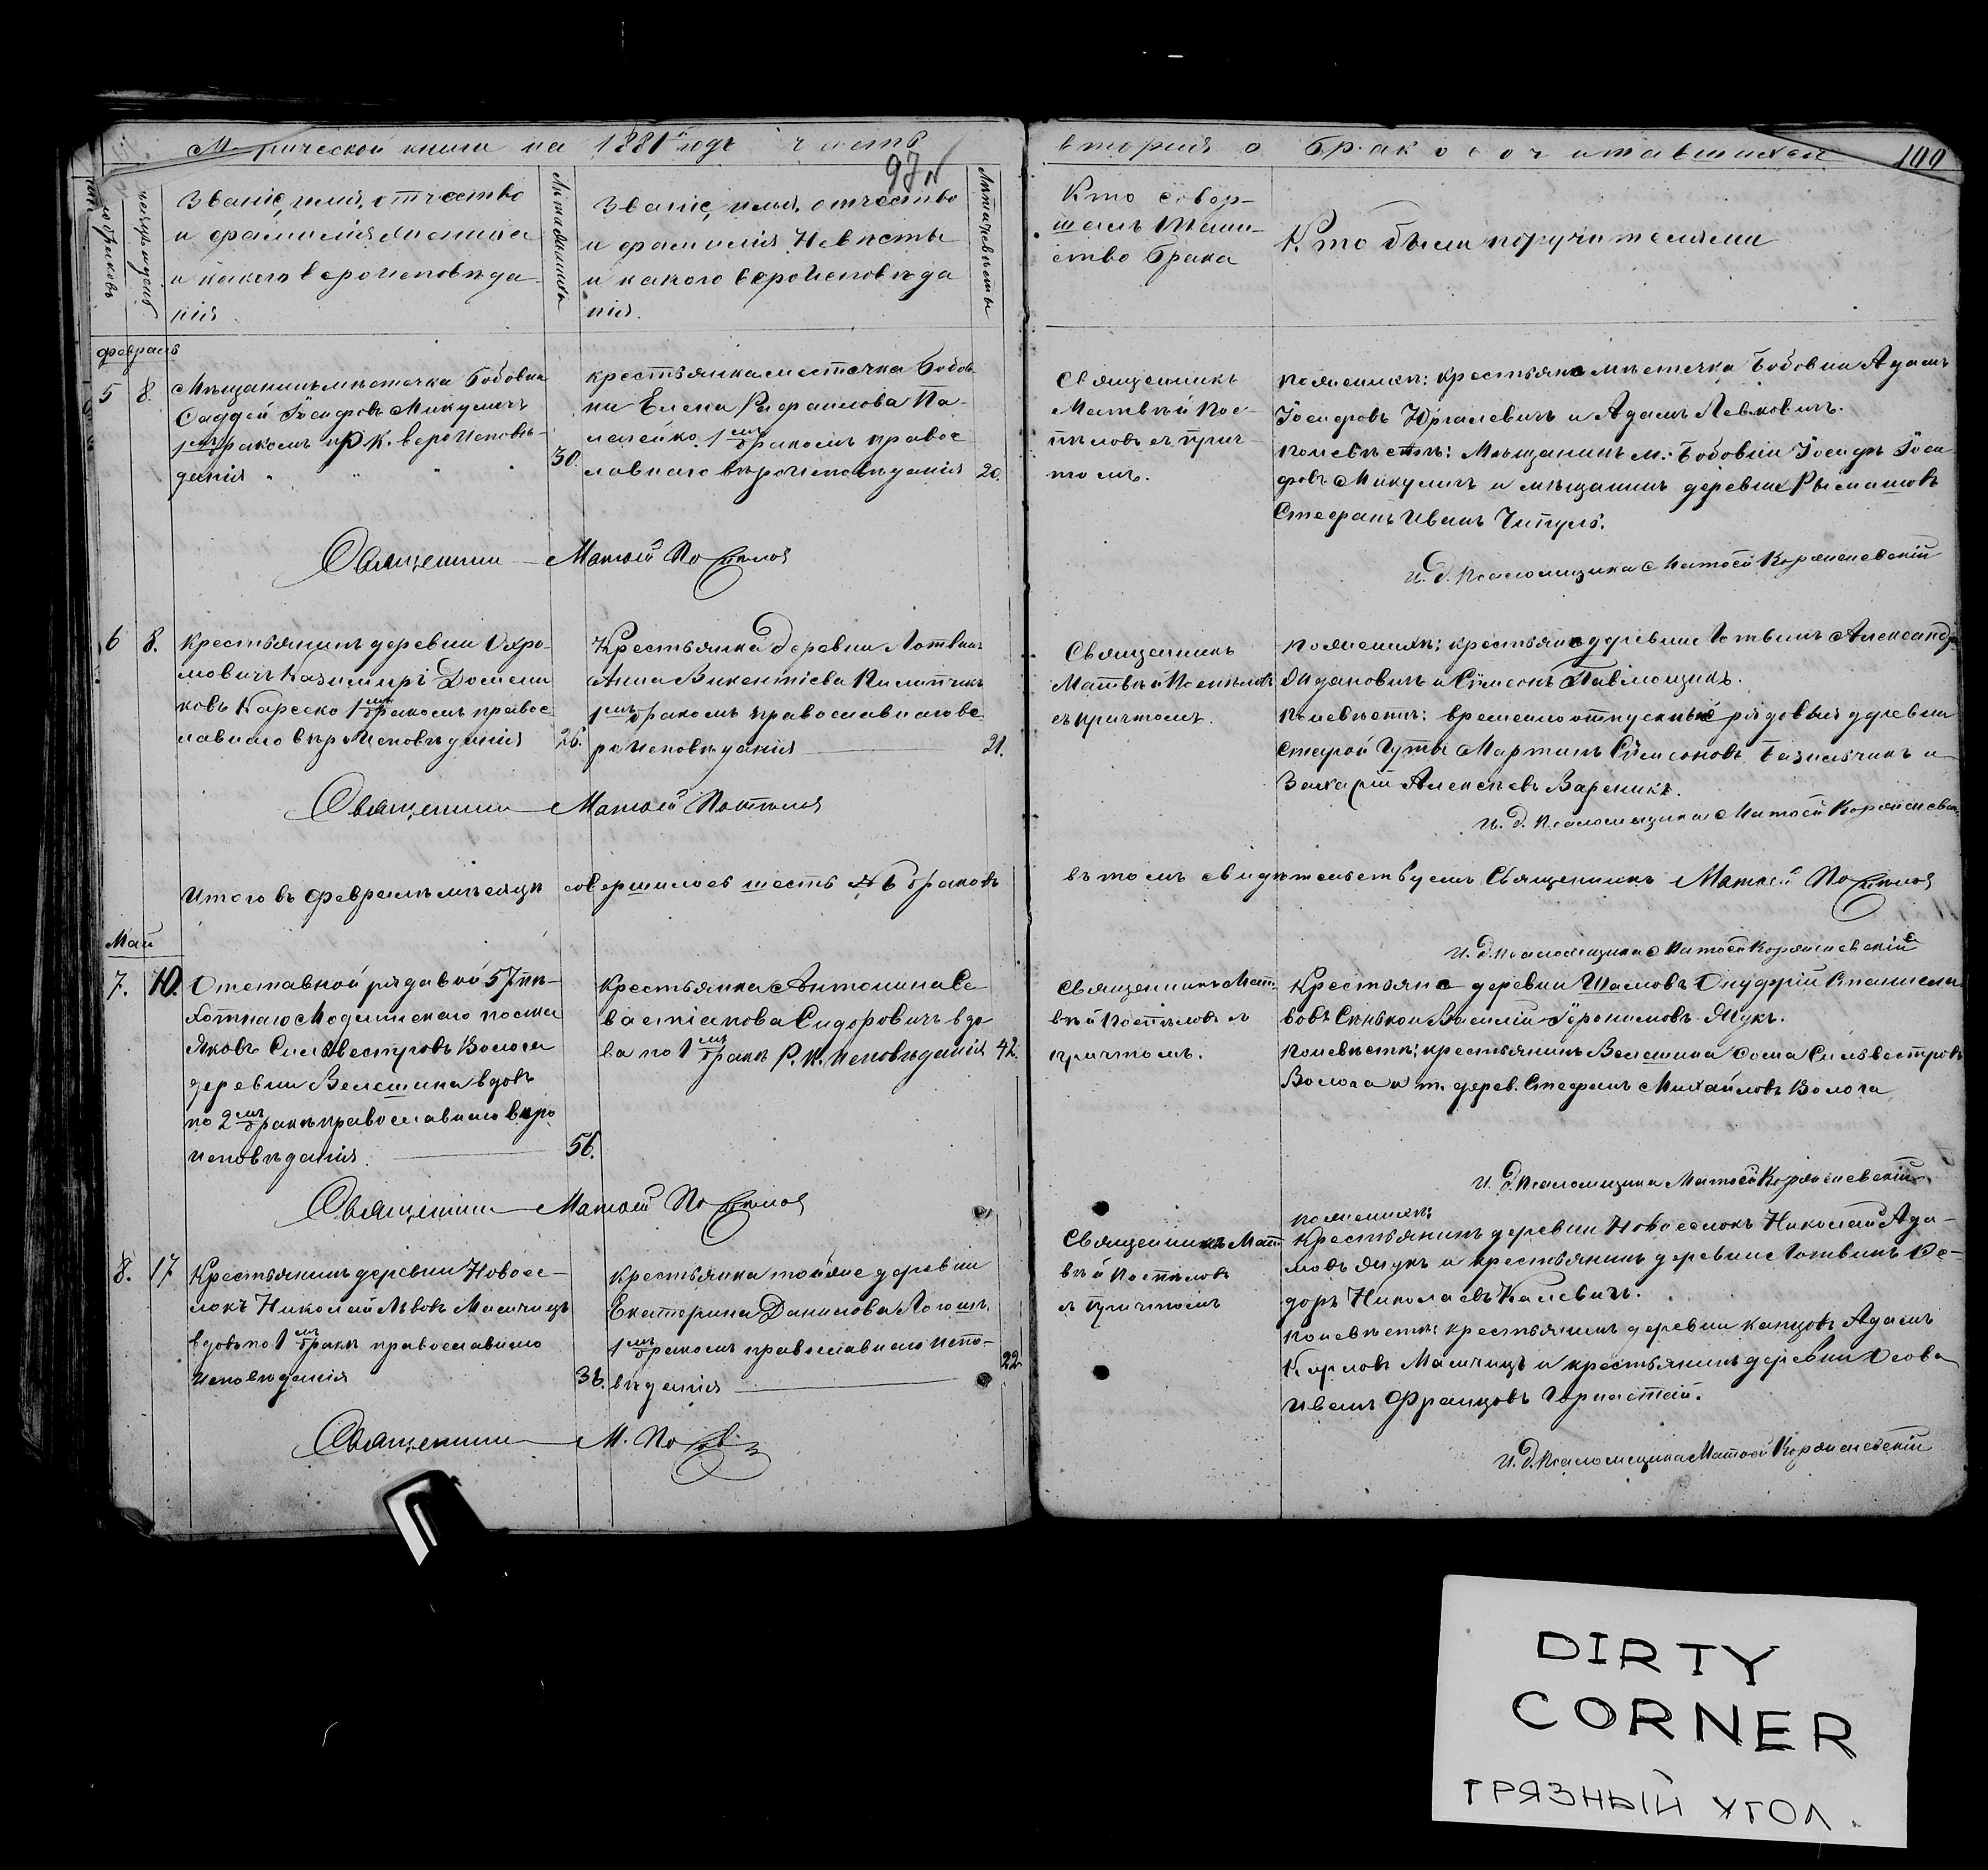 Метрической книги на 1881 годъ часть
97
вторая о бракосочитавшихся
100
счетъ браковъ
месяцъ и день
Званіе, имя, отчество
и фамилія жениха
и какого вероисповѣда
нія
Лѣта жениха
Званіе, имя, отчество
и фамилія Невѣсты
и какого вероисповѣда
нія.
Лѣта невѣсты
Кто совер-
шалъ таин-
ство брака
Кто были поручителями
февраль
5 8.
Мѣщанинъ мѣстечка Бобовни
Фаддей Іосифовъ Микуличъ
1мъ бракомъ Р. К. вероисповѣ-
данія
30.
крестьянка местечка Бобов
ни Елена Рафаилова Па-
лейко 1мъ бракомъ правос
лавнаго вѣроисповѣданія
20.
Священникъ
Матвѣй Пос-
пѣловъ съ прич-
томъ.
по женихѣ: крестьяне мѣстечка Бобовни Адамъ
Іосифовъ Юргалевичъ и Адамъ Левковичъ.
по невѣстѣ: Мѣщанинъ м. Бобовни Іосифъ Іоси
фовъ Микуличъ и мѣщанинъ деревни Рымашовъ
Стефанъ Иванъ Читуль.
Священникъ Матвей Поспѣловъ
И. д. псаломщика Матвей Корженевскій
6 8.
крестьянинъ деревни Охро-
мовичъ Казимиръ Домини
ковъ Кареско 1мъ бракомъ правос
лавнаго вѣроисповѣданія
26.
Крестьянка деревни Лотвинъ
Анна Викентіева Пилипчикъ
1мъ бракомъ православнаго ве
роисповѣданія
21.
Священникъ
Матвѣй Поспѣловъ
съ причтомъ.
по женихѣ: крестьяне деревни Лотвинъ Александръ
и Сѵмеонъ
по невѣстѣ: временно отпускные рядовые деревни
Старой Гуты Мартинъ Сѵмеоновъ и
Захарій Алексѣевъ Вареникъ.
Священникъ Матвей Поспѣловъ
И. д. псаломщика Матвей Корженевскій
Итого въ Февралѣ мѣсяцѣ совершилось шесть № 6 браковъ
въ томъ свидѣтельствуемъ Священникъ Матвей Поспѣловъ
И. д. псаломщика Матвей Корженевскій
Май
7. 10.
Отставной рядавой 57 пѣ-
хотнаго Модлинскаго полка
Яковъ Сильвестровъ Волога
деревни Велешина вдовъ
по 2мъ бракѣ православнаго веро
исповѣданія
56.
крестьянка Антонина Се
вастіанова Сидоровичъ вдо
ва по 1мъ бракѣ Р. К. исповѣданія
42.
Священникъ Мат-
вѣй Поспѣловъ съ
причтомъ.
Крестьяне деревни Онуфрій
Василій Іеронимовъ Жукъ.
по невѣстѣ: крестьянинъ Велешина Фома Сильвестровъ
Волога и т. дерев. Стефанъ Михайловъ Волога
Священникъ Матвей Поспѣловъ
И. д. псаломщика Матвей Корженевскій
8. 17
Крестьянинъ деревни Новосе-
локъ Николай Львовъ
вдовъ по 1мъ бракѣ православнаго
исповѣданія
36.
крестьянка той же деревни
Екатерина Данилова
1мъ бракомъ православнаго испо-
вѣданія
22
Священникъ Мат-
вѣй Поспѣловъ
съ причтомъ
по женихѣ:
Крестьянинъ деревни Новоселокъ Николай Ада-
мовъ Жукъ и крестьянинъ деревни Лотвинъ Ѳе-
доръ Николаевъ
по невѣстѣ: крестьянинъ деревни Адамъ
Карловъ и крестьянинъ деревни Осова
Иванъ Францовъ Горностай.
Священникъ М. Поспѣловъ
И. д. псаломщика Матвей Корженевскій
DIRTY
CORNER
ГРЯЗНЫЙ УГОЛ.